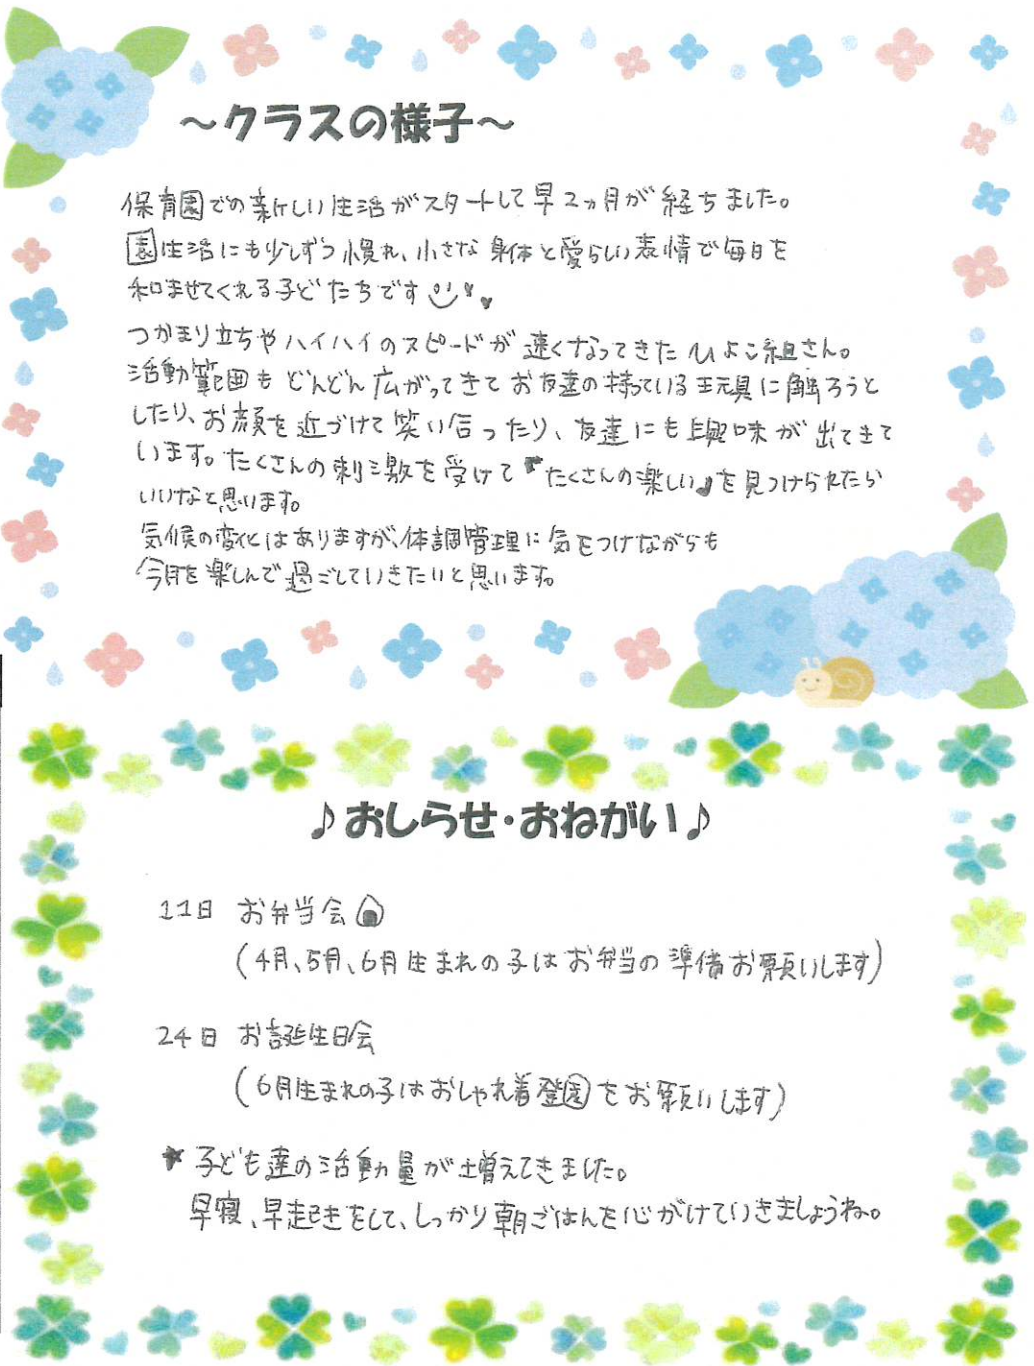 ～クラスの様子～
保育園での新しい生活がスタートして早2ヵ月が経ちました。
園生活にも少しずつ慣れ、小さな身体と愛らしい表情で毎日を
和ませてくれる子どたちです
つかまり立ちやハイハイのスピードが速くなってきたひよこ組さん。
活動範囲もどんどん広がってきてお友達の持っている玩具に触ろうと
したり、お顔を近づけて笑い合ったり、友達にも興味が出てきて
います。たくさんの刺激を受けて『たくさんの楽しい』を見つけられたら
いいなと思います。
気候の変化はありますが、体調管理に気をつけながらも
今月を楽しんで過ごしていきたいと思います。
♪おしらせ・おねがい♪
11日 お弁当会
(4月、5月、6月生まれの子はお弁当の準備お願いします)
24日 お誕生日会
(6月生まれの子はおしゃれ着登園をお願いします)
★子ども達の活動量が増えてきました。
早寝、早起きをして、しっかり朝ごはんを心がけていきましょうね。